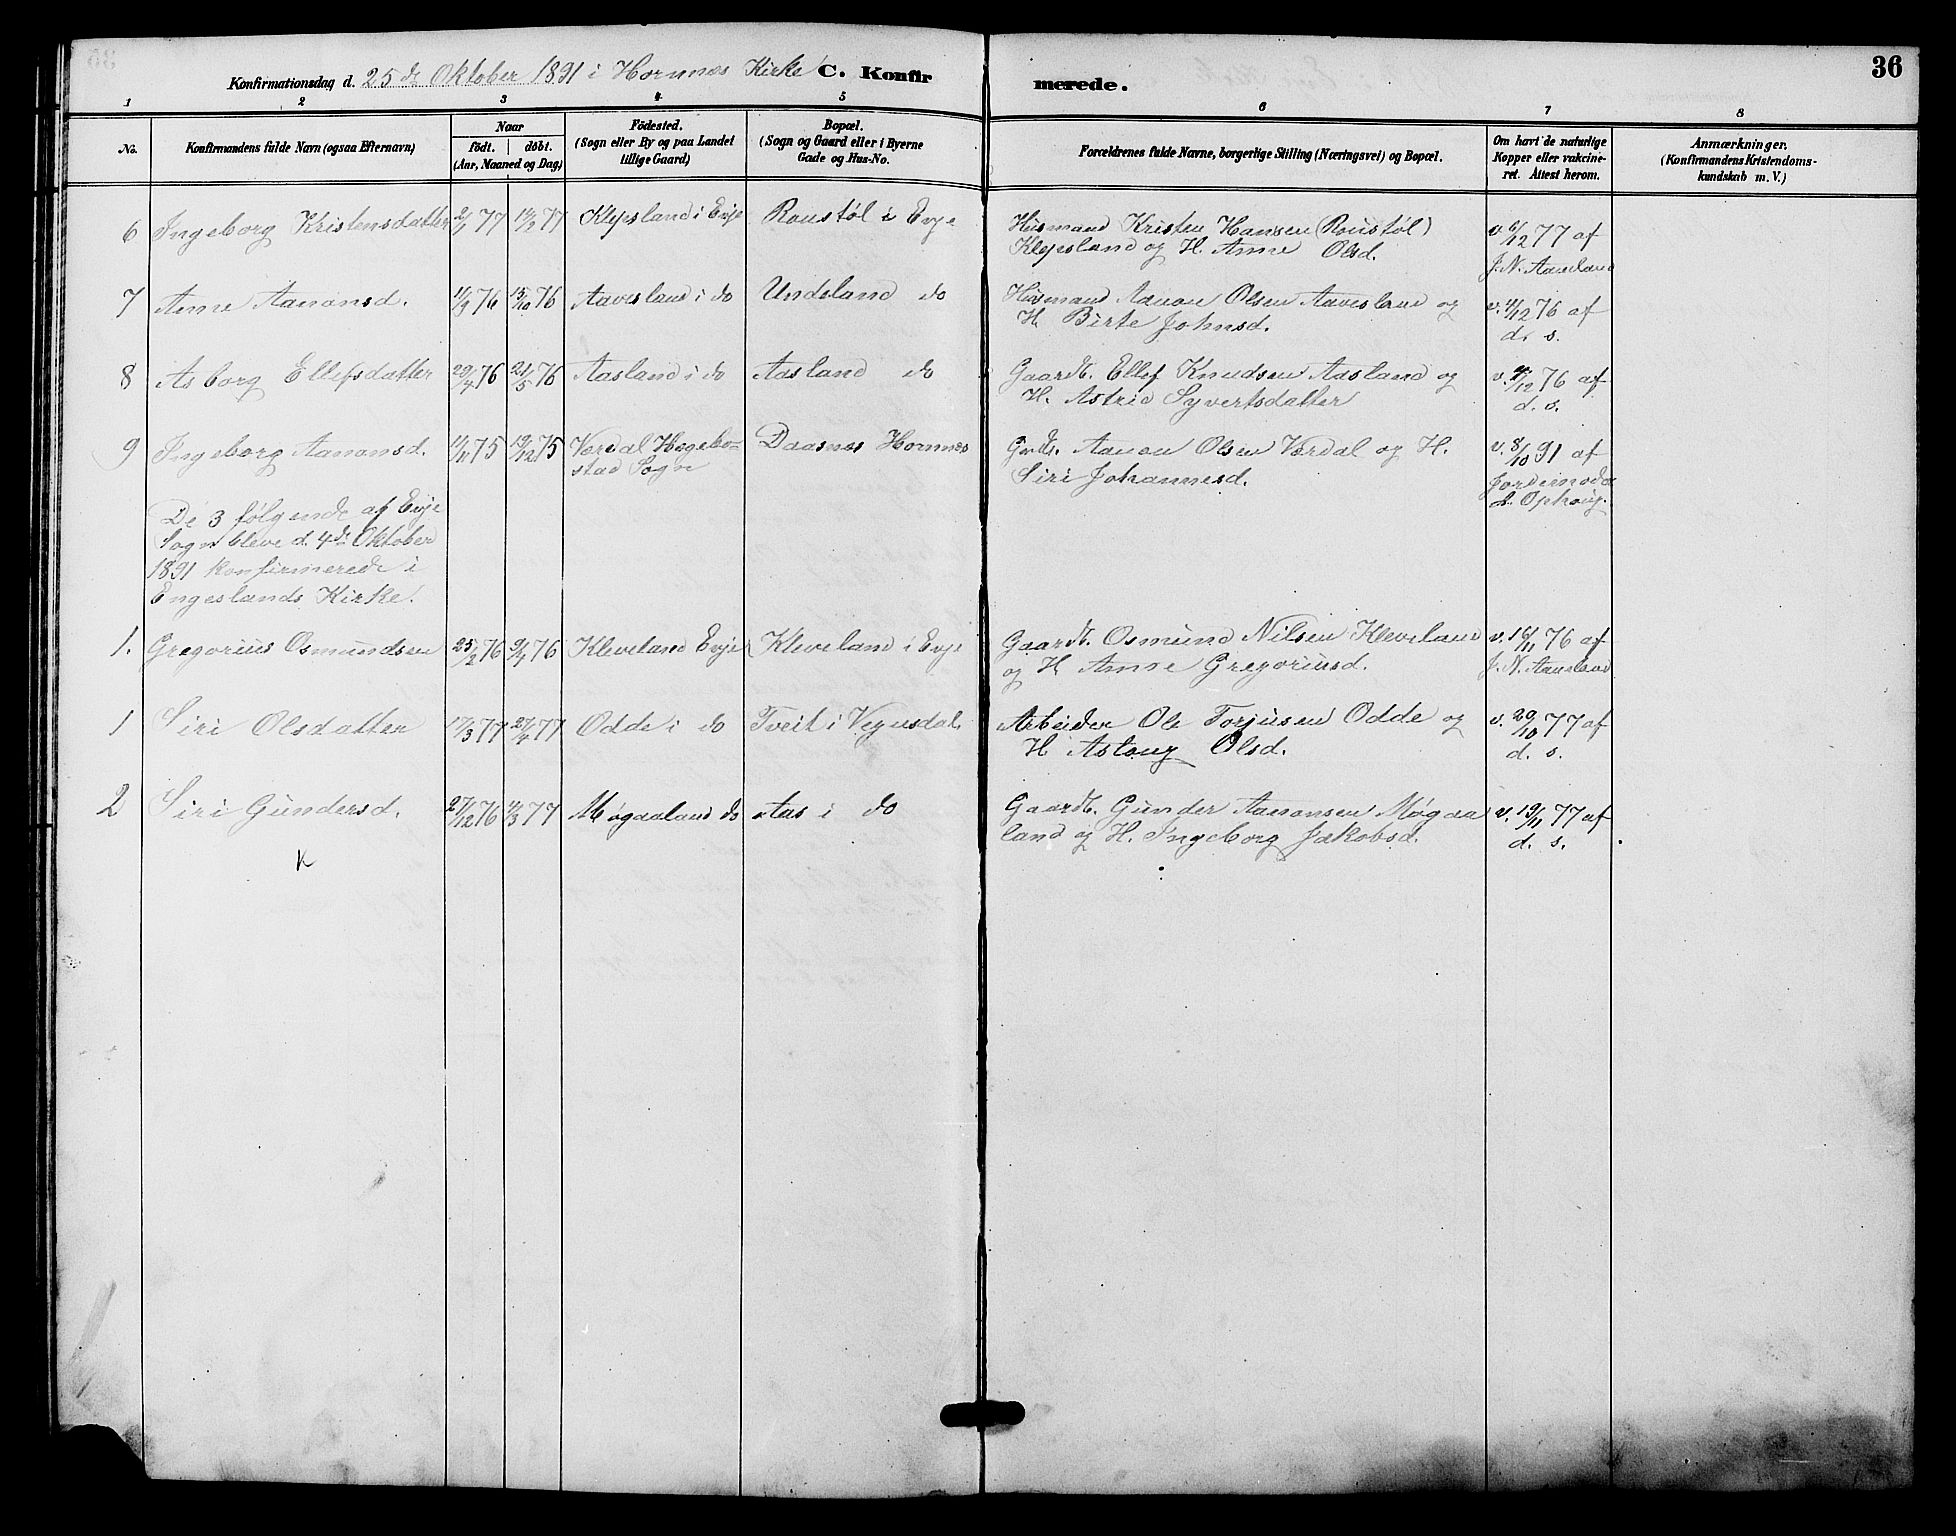 36
Konfirmationsdag d. 25de Oktober 1891 i Hornnes Kirke C. Konfirmerede.
1 2 3 4 5 6 7 8
No.
Konfirmandens fulde Navn (ogsaa Efternavn)
Naar
födt. döbt.
(Aar, Maaned og Dag)
Födested.
(Sogn eller By og paa Landet
tillige Gaard)
Bopæl.
(Sogn og Gaard eller i Byerne
Gade og Hus-No.
Forældrenes fulde Navne, borgerlige Stilling (Næringsvei) og Bopæl.
Om havt de naturlige
Kopper eller vakcine-
ret. Attest herom.
Anmærkninger.
(Konfirmandens Kristendoms-
kundskab m. V.)
6 Ingeborg Kristensdatter 2/1 77 18/2 77 Klepsland i Evje Roustøl i Evje Husmand Kristen Hansen (Roustøl) v. 6/12 77 af
Klepsland og H. Anne Olsd. J. N. Aaneland
7 Anne Aanonsd. 11/9 76 15/10 76 Aavesland i do Undeland do Husmand Aanon Olsen Aavesland og v. 4/12 76 af
H. Birte Johnsd. d. s.
8 Asborg Ellefsdatter 29/4 76 21/5 76 Aasland i do Aasland do Gaardb. Ellef Knudsen Aasland og v. 4/12 76 af
H. Astrid Syvertsdatter d. s.
9 Ingeborg Aanonsd. 11/11 75 19/12 75 Værdal Hægebo- Daasnes Hornnes Grdb. Aanon Olsen Værdal og H. v. 8/10 91 af
stad Sogn Siri Johannesd. Jordemoder
A. Ophoug.
De 3 følgende af Evje
Sogn bleve d. 4de Oktober
1891 konfirmerede i
Engeslands Kirke.
1. Gregorius Osmundsen 25/2 76 9/4 76 Kleveland Evje Kleveland i Evje Gaardb. Osmund Nilsen Kleveland v. 16/11 76 af
og H. Anne Gregoriusd. J. N. Aaneland
1 Siri Olsdatter 17/3 77 27/4 77 Odde i do Tveit i Vegusdal Arbeider Ole Torjusen Odde og v. 29/10 77 af
H. Aslaug Olsd. d. s.
2 Siri Gundersd. 27/12 76 4/3 77 Møgaaland do Aas i do Gaardb. Gunder Aanonsen Møgaa v. 19/11 77 af
land og H. Ingeborg Jakobsd. d. s.
K